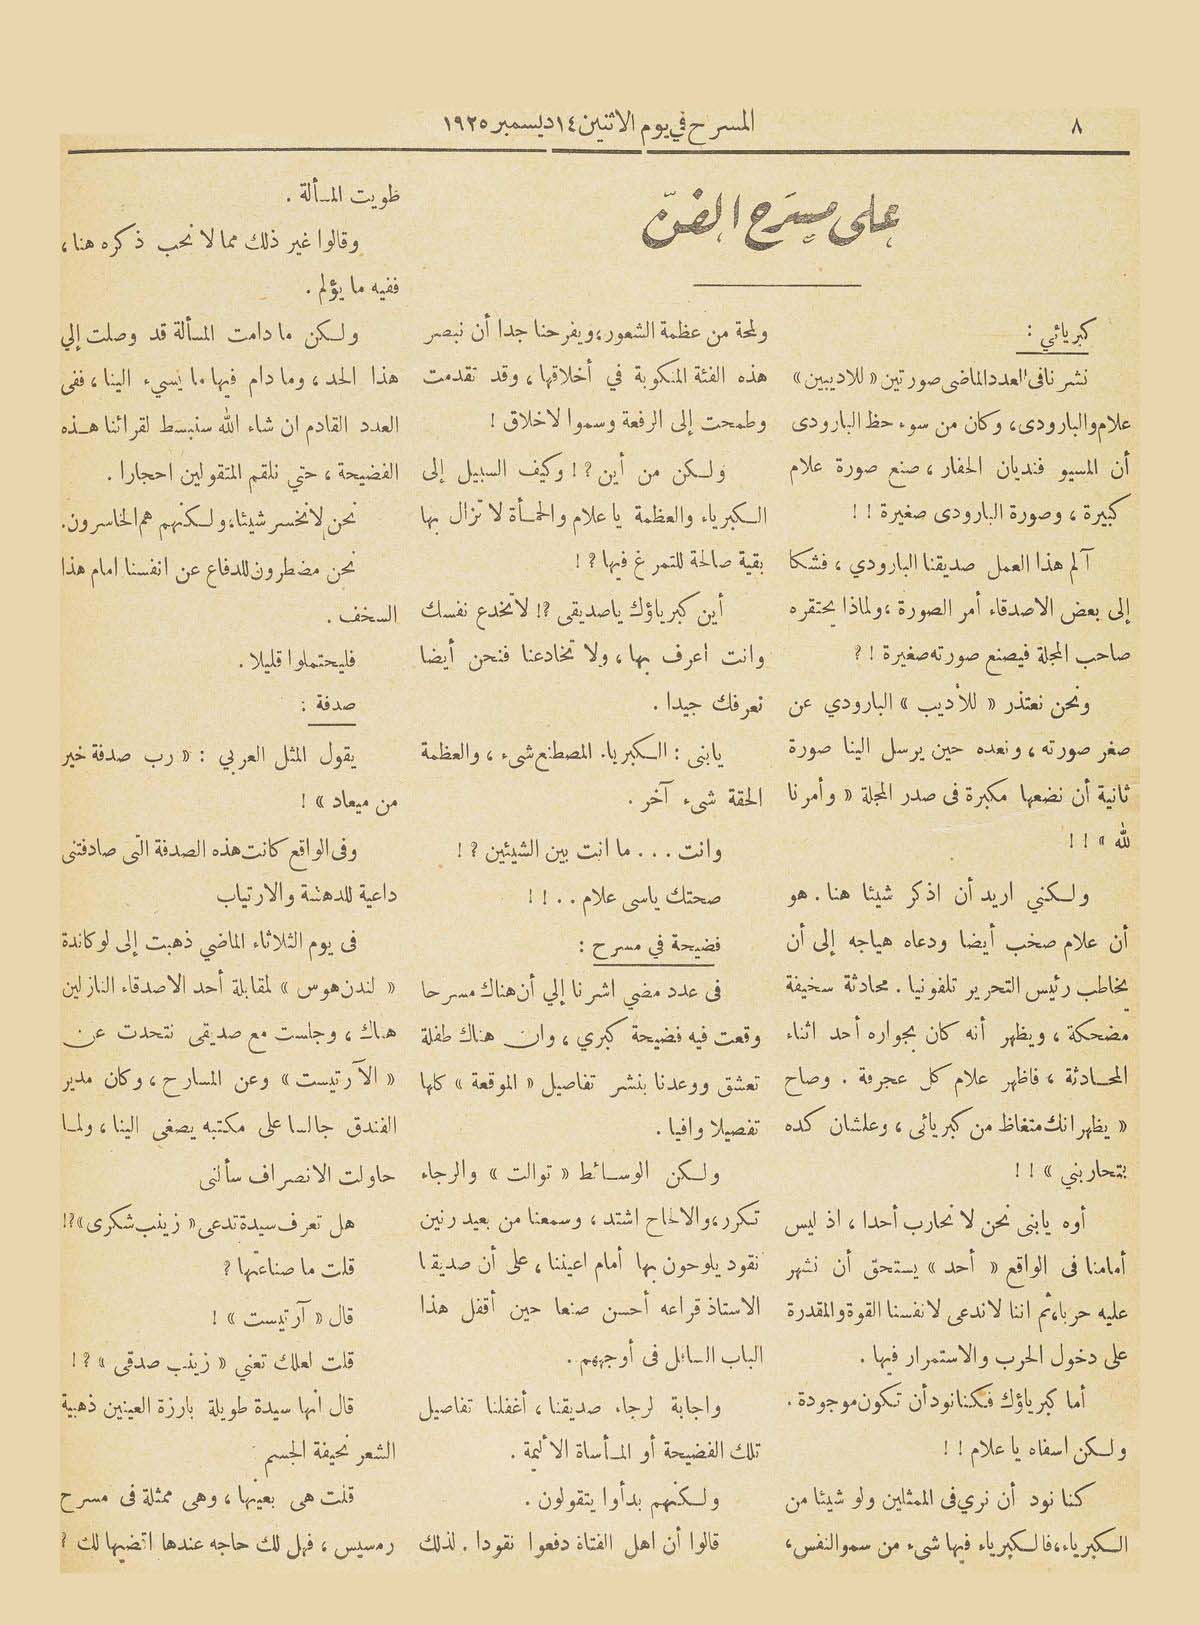 ٨
المسرح في يوم الاثنين ١٤ ديسمبر ١٩٢٥
على مسرح الفن
كبريائي :
نشرنا فى العدد الماضى صورتين « للاديبين »
علام والبارودى، وكان من سوء حظ البارودى
أن المسيو فنديان الحفار ، صنع صورة علام
كبيرة ، وصورة البارودى صغيرة ! !
آلم هذا العمل صديقنا البارودي ، فشكا
إلى بعض الاصدقاء أمر الصورة ، ولماذا يحتقره
صاحب المجلة فيصنع صورته صغيرة ! ?
ونحن نعتذر « للأديب » البارودي عن
صغر صورته ، ونعده حين يرسل الينا صورة
ثانية أن نضعها مكبرة فى صدر المجلة « وأمرنا
لله » ! !
ولكني اريد أن اذكر شيئا هنا . هو
أن علام صخب أيضا ودعاه هياجه إلى أن
يخاطب رئيس التحرير تلفونيا . محادثة سخيفة
مضحكة ، ويظهر أنه كان بجواره أحد اثناء
المحادثة ، فاظهر علام كل عجرفة . وصاح
« يظهر انك متغاظ من كبريائى ، وعلشان كده
بتحاربني » ! !
أوه يابنى نحن لا نحارب أحدا ، اذ ليس
أمامنا فى الواقع « أحد » يستحق أن نشهر
عليه حربا، ثم اننا لا ندعى لانفسنا القوة والمقدرة
على دخول الحرب والاستمرار فيها .
أما كبرياؤك فكنا نود أن تكون موجودة .
ولكن اسفاه يا علام ! !
كنا نود أن نري فى الممثلين ولو شيئا من
الكبرياء، فالكبرياء فيها شىء من سمو النفس،
ولمحة من عظمة الشعور، ويفرحنا جدا أن نبصر
هذه الفئة المنكوبة في أخلاقها ، وقد تقدمت
وطمحت إلى الرفعة وسموا لاخلاق !
ولكن من أين ? ! وكيف السبيل إلى
الكبرياء والعظمة يا علام والحمأة لا تزال بها
بقية صالحة للتمرغ فيها ? !
أين كبرياؤك ياصديقى ?! لا تخدع نفسك
وانت اعرف بها ، ولا تخادعنا فنحن أيضا
نعرفك جيدا .
يابنى : الكبريا. المصطنع شىء ، والعظمة
الحقة شىء آخر .
وانت . . . ما انت بين الشيئين ? !
صحتك ياسى علام . . ! !
فضيحة في مسرح :
فى عدد مضي اشرنا إلي أن هناك مسرحا
وقعت فيه فضيحة كبري ، وان هناك طفلة
تعشق ووعدنا بنشر تفاصيل « الموقعة » كلها
تفصيلا وافيا .
ولكن الوسائط « توالت » والرجاء
تكرر، والالحاح اشتد ، وسمعنا من بعيد رنين
نقود يلوحون بها أمام اعيننا ، على أن صديقنا
الاستاذ قراعه أحسن صنعا حين أقفل هذا
الباب السائل فى أوجههم .
واجابة لرجاء صديقنا ، أغفلنا تفاصيل
تلك الفضيحة أو المأساة الأليمة .
ولكنهم بدأوا يتقولون .
قالوا أن اهل الفتاة دفعوا نقودا . لذلك
طويت المسألة .
وقالوا غير ذلك مما لا نحب ذكره هنا ،
ففيه ما يؤلم .
ولكن ما دامت المسألة قد وصلت إلي
هذا الحد ، وما دام فيها ما يسيء الينا ، ففى
العدد القادم ان شاء الله سنبسط لقرائنا هذه
الفضيحة ، حتي نلقم المتقولين احجارا .
نحن لا نخسر شيئا، ولكنهم هم الخاسرون.
نحن مضطرون للدفاع عن انفسنا امام هذا
السخف .
فليحتملوا قليلا .
صدفة :
يقول المثل العربي : « رب صدفة خير
من ميعاد » !
وفى الواقع كانت هذه الصدفة التى صادفتنى
داعية للدهشة والارتياب
فى يوم الثلاثاء الماضي ذهبت إلى لوكاندة
« لندن هوس » لمقابلة أحد الاصدقاء النازلين
هناك ، وجلست مع صديقى نتحدث عن
« الآرتيست » وعن المسارح ، وكان مدير
الفندق جالسا على مكتبه يصغى الينا ، ولما
حاولت الانصراف سألنى
هل تعرف سيدة تدعى « زينب شكرى » ?!
قلت ما صناعتها ?
قال « آرتيست » !
قلت لعلك تعني « زينب صدقى » ? !
قال انها سيدة طويلة بارزة العينين ذهبية
الشعر نحيفة الجسم
قلت هى بعينها ، وهى ممثلة فى مسرح
رمسيس ، فهل لك حاجه عندها اقضيها لك ?